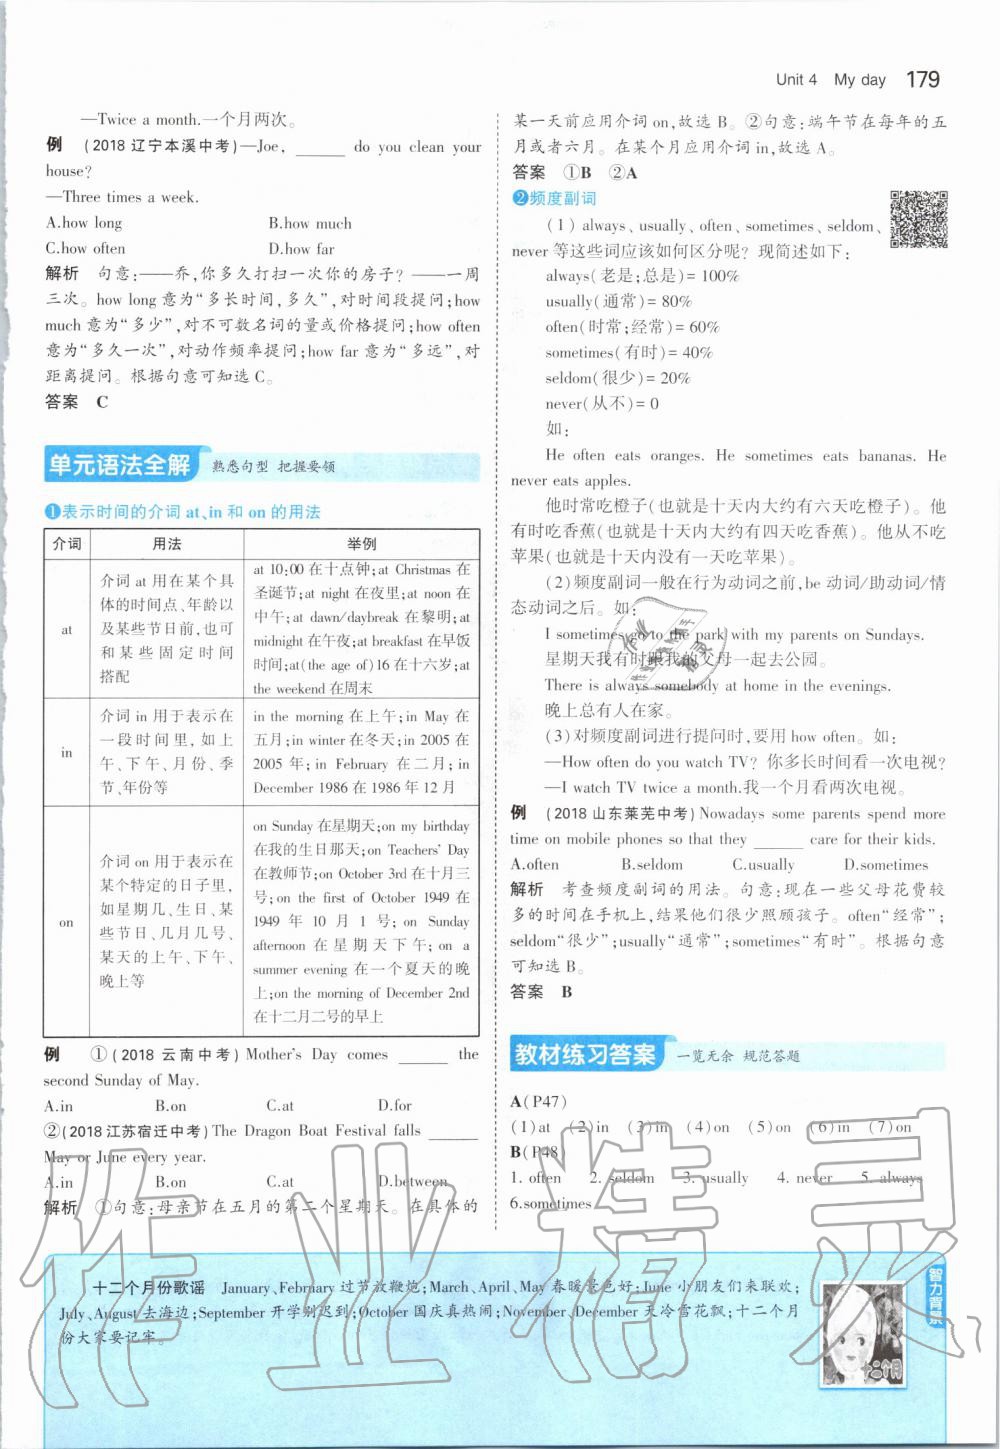 Unit 4 My day 179
—Twice a month.一个月两次。
例 (2018辽宁本溪中考)—Joe, ______ do you clean your
house?
—Three times a week.
A.how long B.how much
C.how often D.how far
解析 句意:——乔,你多久打扫一次你的房子?——一周
三次。how long 意为“多长时间,多久”,对时间段提问;how
much 意为“多少”,对不可数名词的量或价格提问;how often
意为“多久一次”,对动作频率提问;how far 意为“多远”,对
距离提问。根据句意可知选C。
答案 C
单元语法全解 熟悉句型 把握要领
❶表示时间的介词 at、in 和 on 的用法
介词 用法 举例
at
介词 at 用在某个具
体的时间点、年龄以
及某些节日前,也可
和某些固定时间
搭配
at 10:00 在十点钟;at Christmas 在
圣诞节;at night 在夜里;at noon 在
中午;at dawn/daybreak 在黎明;at
midnight 在午夜;at breakfast 在早饭
时间;at(the age of)16 在十六岁;at
the weekend 在周末
in
介词 in 用于表示在
一段时间里,如上
午、下午、月份、季
节、年份等
in the morning 在上午;in May 在
五月;in winter 在冬天;in 2005 在
2005 年;in February 在二月;in
December 1986 在 1986 年 12 月
on
介词 on 用于表示在
某个特定的日子里,
如星期几、生日、某
些节日、几月几号、
某天的上午、下午、
晚上等
on Sunday 在星期天;on my birthday
在我的生日那天;on Teachers' Day
在教师节;on October 3rd 在十月三
号;on the first of October 1949 在
1949 年 10 月 1 号;on Sunday
afternoon 在星期天下午;on a
summer evening 在一个夏天的晚
上;on the morning of December 2nd
在十二月二号的早上
例 ①(2018 云南中考) Mother's Day comes ______ the
second Sunday of May.
A.in B.on C.at D.for
②(2018江苏宿迁中考)The Dragon Boat Festival falls ______
May or June every year.
A.in B.on C.at D.between
解析 ①句意:母亲节在五月的第二个星期天。在具体的
某一天前应用介词on,故选 B。②句意:端午节在每年的五
月或者六月。在某个月应用介词in,故选A。
答案 ①B ②A
❷频度副词
(1) always、usually、often、sometimes、seldom、
never 等这些词应该如何区分呢? 现简述如下:
always(老是;总是)= 100%
usually(通常)= 80%
often(时常;经常)= 60%
sometimes(有时)= 40%
seldom(很少)= 20%
never(从不)= 0
如:
He often eats oranges. He sometimes eats bananas. He
never eats apples.
他时常吃橙子(也就是十天内大约有六天吃橙子)。他
有时吃香蕉(也就是十天内大约有四天吃香蕉)。他从不吃
苹果(也就是十天内没有一天吃苹果)。
(2)频度副词一般在行为动词之前,be 动词/助动词/情
态动词之后。如:
I sometimes go to the park with my parents on Sundays.
星期天我有时跟我的父母一起去公园。
There is always somebody at home in the evenings.
晚上总有人在家。
(3)对频度副词进行提问时,要用 how often。如:
—How often do you watch TV? 你多长时间看一次电视?
—I watch TV twice a month.我一个月看两次电视。
例 (2018 山东莱芜中考) Nowadays some parents spend more
time on mobile phones so that they ______ care for their kids.
A.often B.seldom C.usually D.sometimes
解析 考查频度副词的用法。句意:现在一些父母花费较
多的时间在手机上,结果他们很少照顾孩子。often“经常”;
seldom“很少”;usually“通常”;sometimes“有时”。根据句意
可知选B。
答案 B
教材练习答案 一览无余 规范答题
A(P47)
(1)at (2)in (3)in (4)on (5)on (6)in (7)on
B(P48)
1. often 2. seldom 3. usually 4. never 5. always
6.sometimes
十二个月份歌谣 January、February 过节放鞭炮;March、April、May 春暖景色好;June 小朋友们来联欢;
July、August 去海边;September 开学别迟到;October 国庆真热闹;November、December 天冷雪花飘;十二个月
份大家要记牢。
智力背景
十二个月
作业精灵